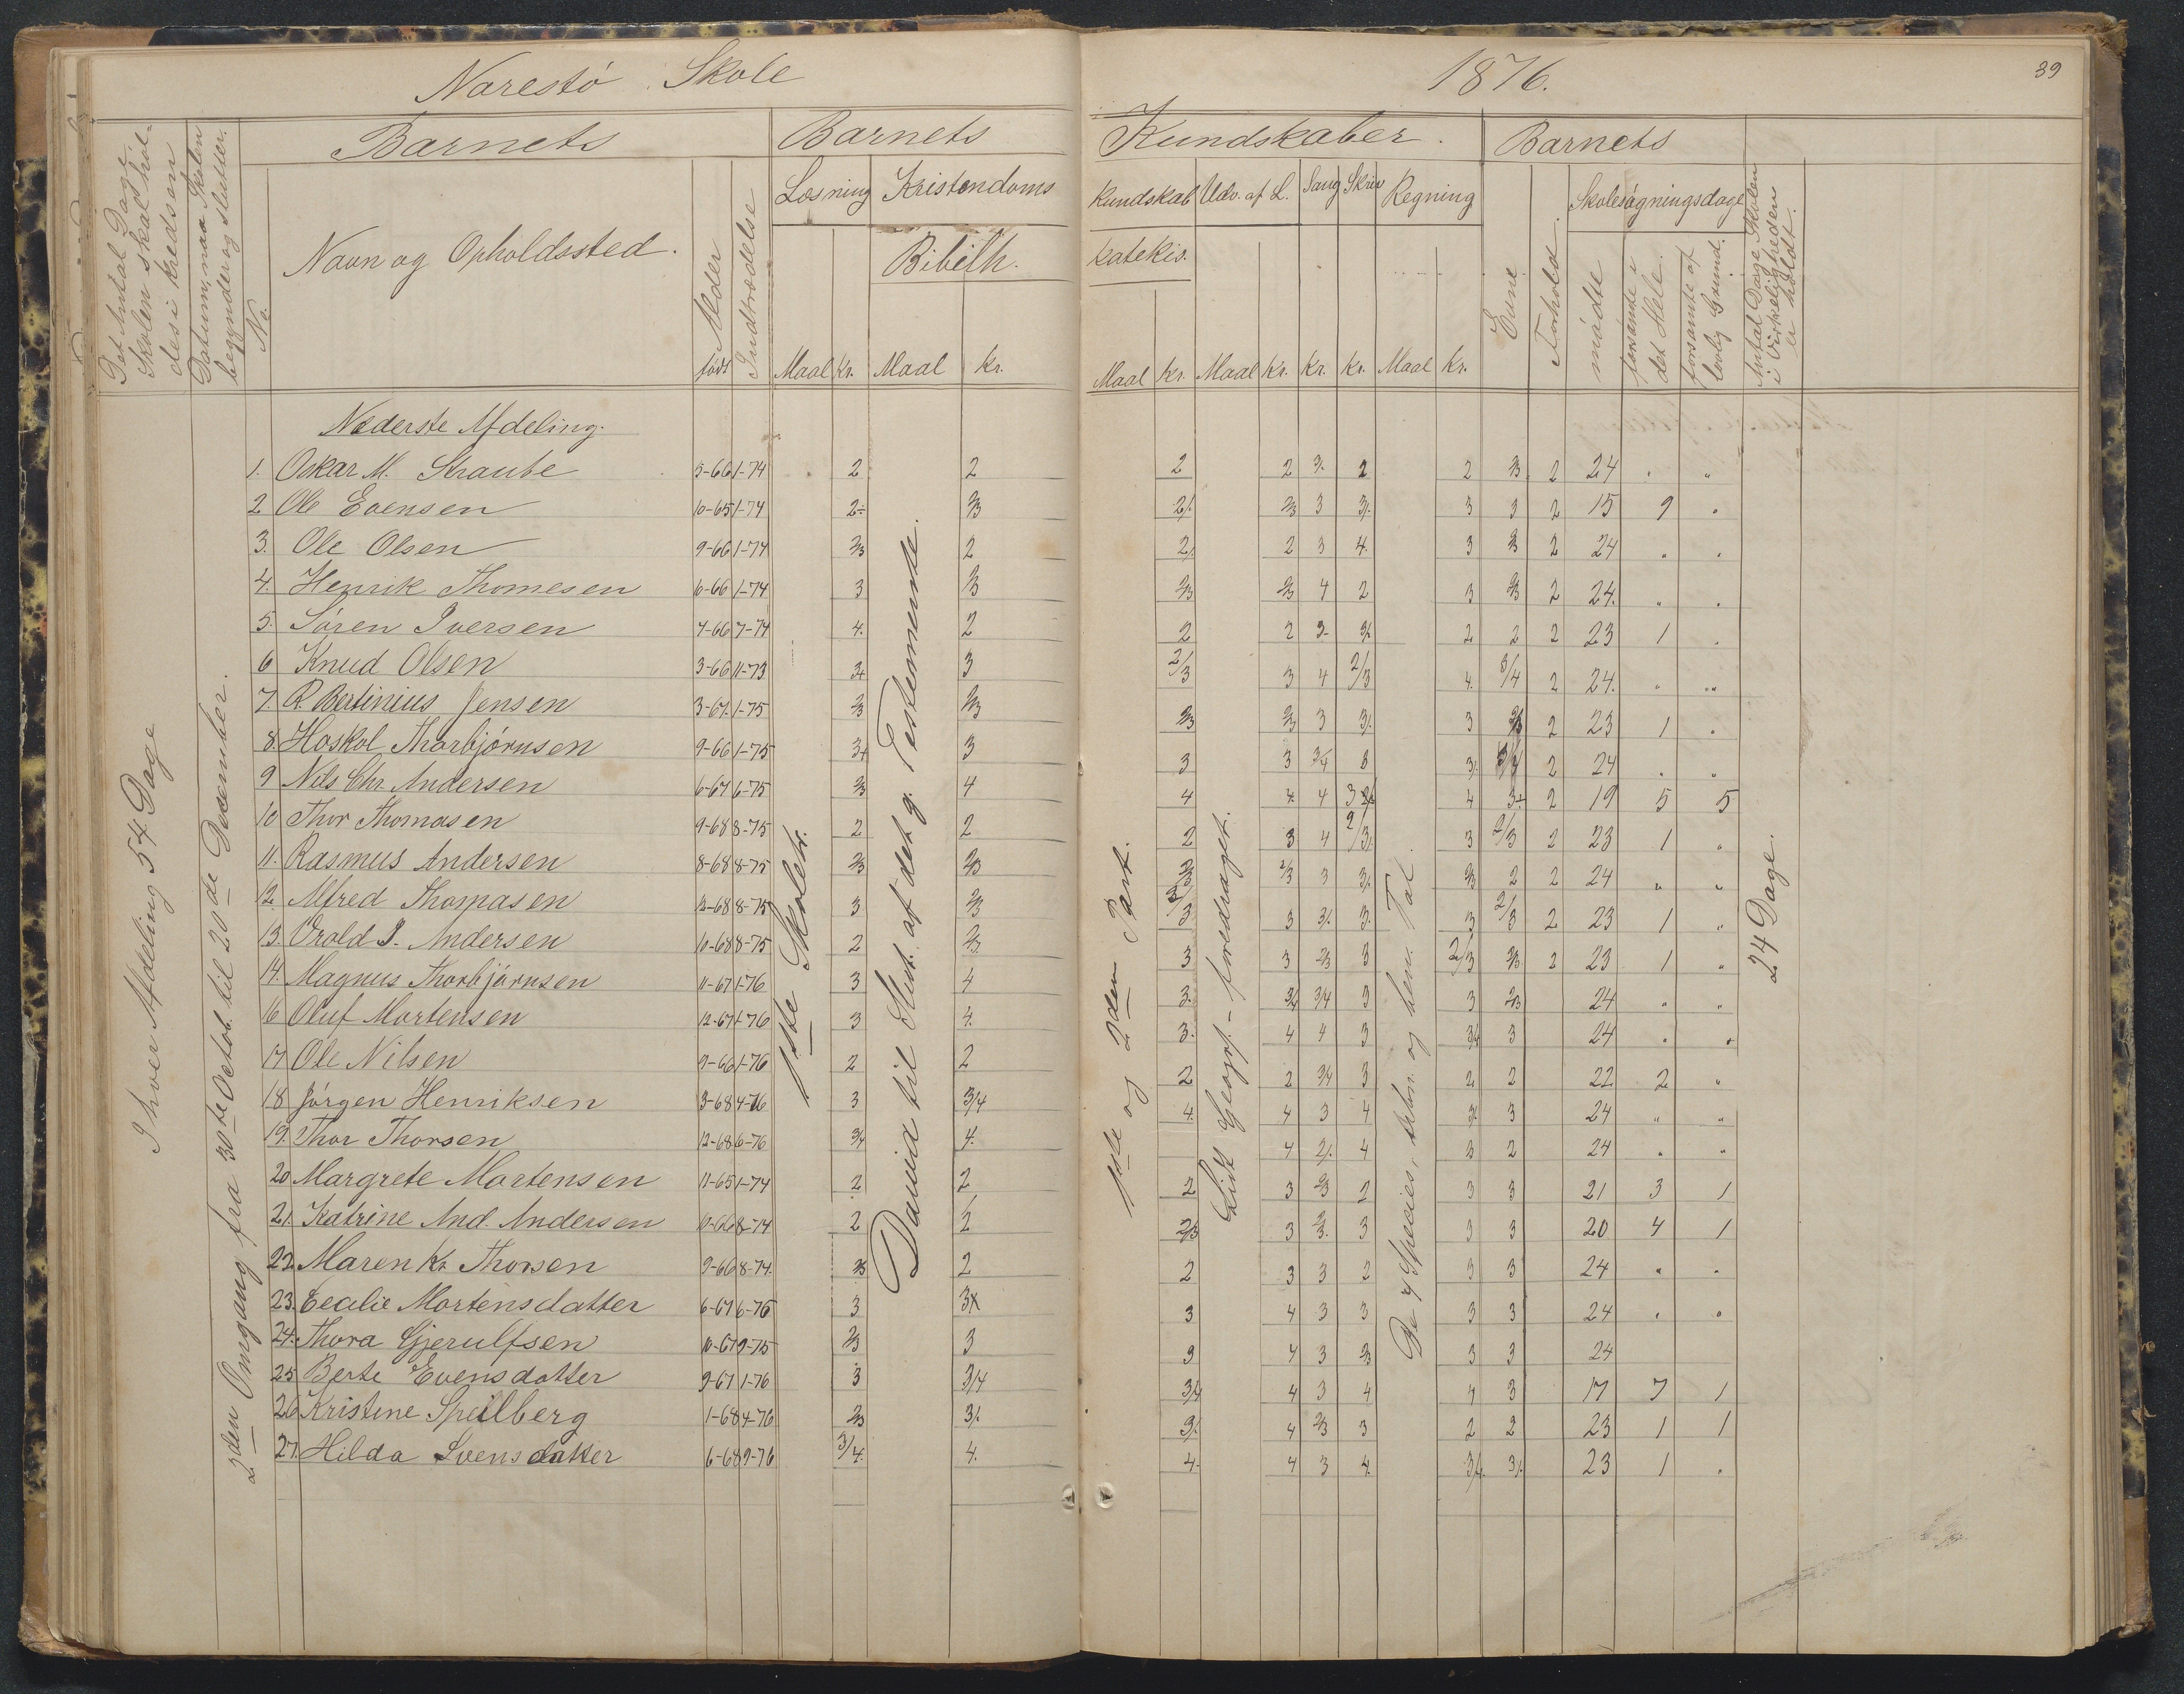 Narestö Skole
1876.
39
Det Antal Dage
Skolen skal hol-
des i Kredsen
Datum, naar Skolen
begynder og slutter.
No.
Barnets
Navn og Opholdssted.
Alder
født
Indtrædelse
Barnets
Læsning
Kristendoms
Bibelh.
Maal Kr. Maal Kr.
Kundskaber.
Kundskab Udv. af L. Sang Skriv Regning
Katekis.
Maal Kr. Maal Kr. Kr. Kr. Maal Kr.
Barnets
Evne
Forhold
Skolesøgningsdage
mødte
forsømte i
det Hele.
forsømte af
lovlig Grund.
Antal Dage Skolen
i Virkeligheden
er holdt.
Nederste Afdeling.
1. Oskar M. Straube 5-66 1-74 2 2 2 2 3. 2 2 2/3 2 24 " "
2 Ole Evensen 10-65 1-74 2÷ 2/3 2/. 2/3 3 3/. 3 3 2 15 9 "
3. Ole Olsen 9-66 1-74 2/3 2 2/. 2 3 4. 3 2/3 2 24 " "
4. Henrik Thomesen 6-66 1-74 3 2/3 2/3 2/3 4 2 3 2/3 2 24. " "
5. Søren Iversen 7-66 7-74 4. 2 2 2 3. 3/. 2 2 2 23 1 "
6 Knud Olsen 3-66 11-73 3+ 3 2/3 3 4 2/3 4. 3/4 2 24. " "
7. R. Bertinius Jensen 3-67. 1-75 2/3 2/3 2/3 2/3 3 3/. 3 2/3 2 23 1 "
8. Hoskol Thorbjørnsen 9-66 1-75 3+ 3 3 3 3/4 3 3/. 3/4 2 24 " "
9 Nils Chr. Andersen 6-67 6-75 2/3 4 4 4 4 3 4 3+ 2 19 5 5
10 Thor Thomasen 9-68 8-75 2 2 2 3 4 2/3/. 3 2/3 2 23 1 "
11. Rasmus Andersen 8-68 8-75 2/3 2/3 2/3 2/3 3 3/. 2/3 2 2 24 " "
12. Alfred Thomasen 12-68 8-75 3 2/3 2/3 3 3/. 3. 3 2/3 2 23 1 "
13. Orald J. Andersen 10-68 8-75 2 2/3 3 3 2/3 3 2/3 2/3 2 23 1 "
14. Magnus Thorbjørnsen 11-67 1-76 3 4 3. 3/4 3/4 3 3 2/3 24 " "
16 Oluf Mortensen 12-67 1-76 3 4. 3. 4 4 3 3/4 3 24 " "
17 Ole Nilsen 9-66 1-76 2 2 2 2 3/4 3 2 2 22 2 "
18 Jørgen Henriksen 3-68 4-76 3 3/4 4. 4 3 4 3/. 3 24 " "
19. Thor Thorsen 12-68 6-76 3/4 4. 4 2/. 4 3 2 24 " "
20 Margrete Mortensen 11-65 1-74 2 2 2 3 2/3 2 3 3 21 3 1
21. Katrine And. Andersen 10-66 8-74 2 2 2/3 3 2/3. 3 3 3 20 4 1
22. Maren Kr. Thorsen 9-66 8-74. 2/3 2 2 3 3 2 3 3 24 " "
23. Cecilie Mortensdatter 6-67 6-75 3 3x 3 4 3 3 3 3 24 " "
24. Thora Gjerulfsen 10-67 9-75 2/3 3 3 4 3 2/3 3 3 24
25 Berte Evensdatter 9-67 1-76 3 3/4 3/4 4 3 4 4 3 17 7 1
26 Kristine Speilberg 1-68 4-76 2/3 3/. 3/. 4 2/3 3 2 2 23 1 1
27. Hilda Svensdatter 6-68 9-76 3/4. 4. 4. 4 3 4. 3/4. 3/. 23 1 "
I hver Afdeling 54 Dage
2den Omgang fra 30te Octob. til 20de December.
1ste Skoletr.
David til Slut. af det g. Testemente.
1ste og 2den Part.
Lidt Geogrf. - foredraget.
De 4 Species, ubn. og ben. Tal.
24 Dage.